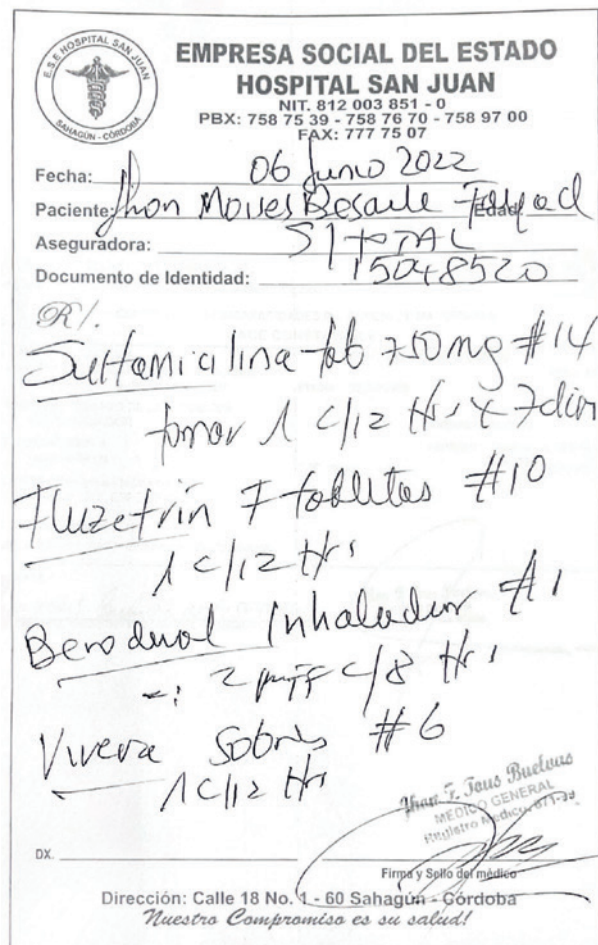 E.S.E HOSPITAL SAN JUAN
SAHAGÚN - CÓRDOBA
EMPRESA SOCIAL DEL ESTADO
HOSPITAL SAN JUAN
NIT. 812 003 851 - 0
PBX: 758 75 39 - 758 76 70 - 758 97 00
FAX: 777 75 07
Fecha: 06 Junio 2022
Paciente: Jhon Moises Besaile Edad:
Aseguradora:
Documento de Identidad: 15048520
R/.
Sultamicilina tab 750mg #14
tomar 1 c/12 Hrs x 7 dias
Fluzetrin F tabletas #10
1 c/12 Hrs
Berodual Inhalador #1
2 puff c/8 Hrs
Vivera Sobres #6
1 c/12 Hrs
Jhon F. Tous Buelvas
MEDICO GENERAL
Registro Medico
DX.
Firma y Sello del médico
Dirección: Calle 18 No. 1 - 60 Sahagún - Córdoba
Nuestro Compromiso es su salud!